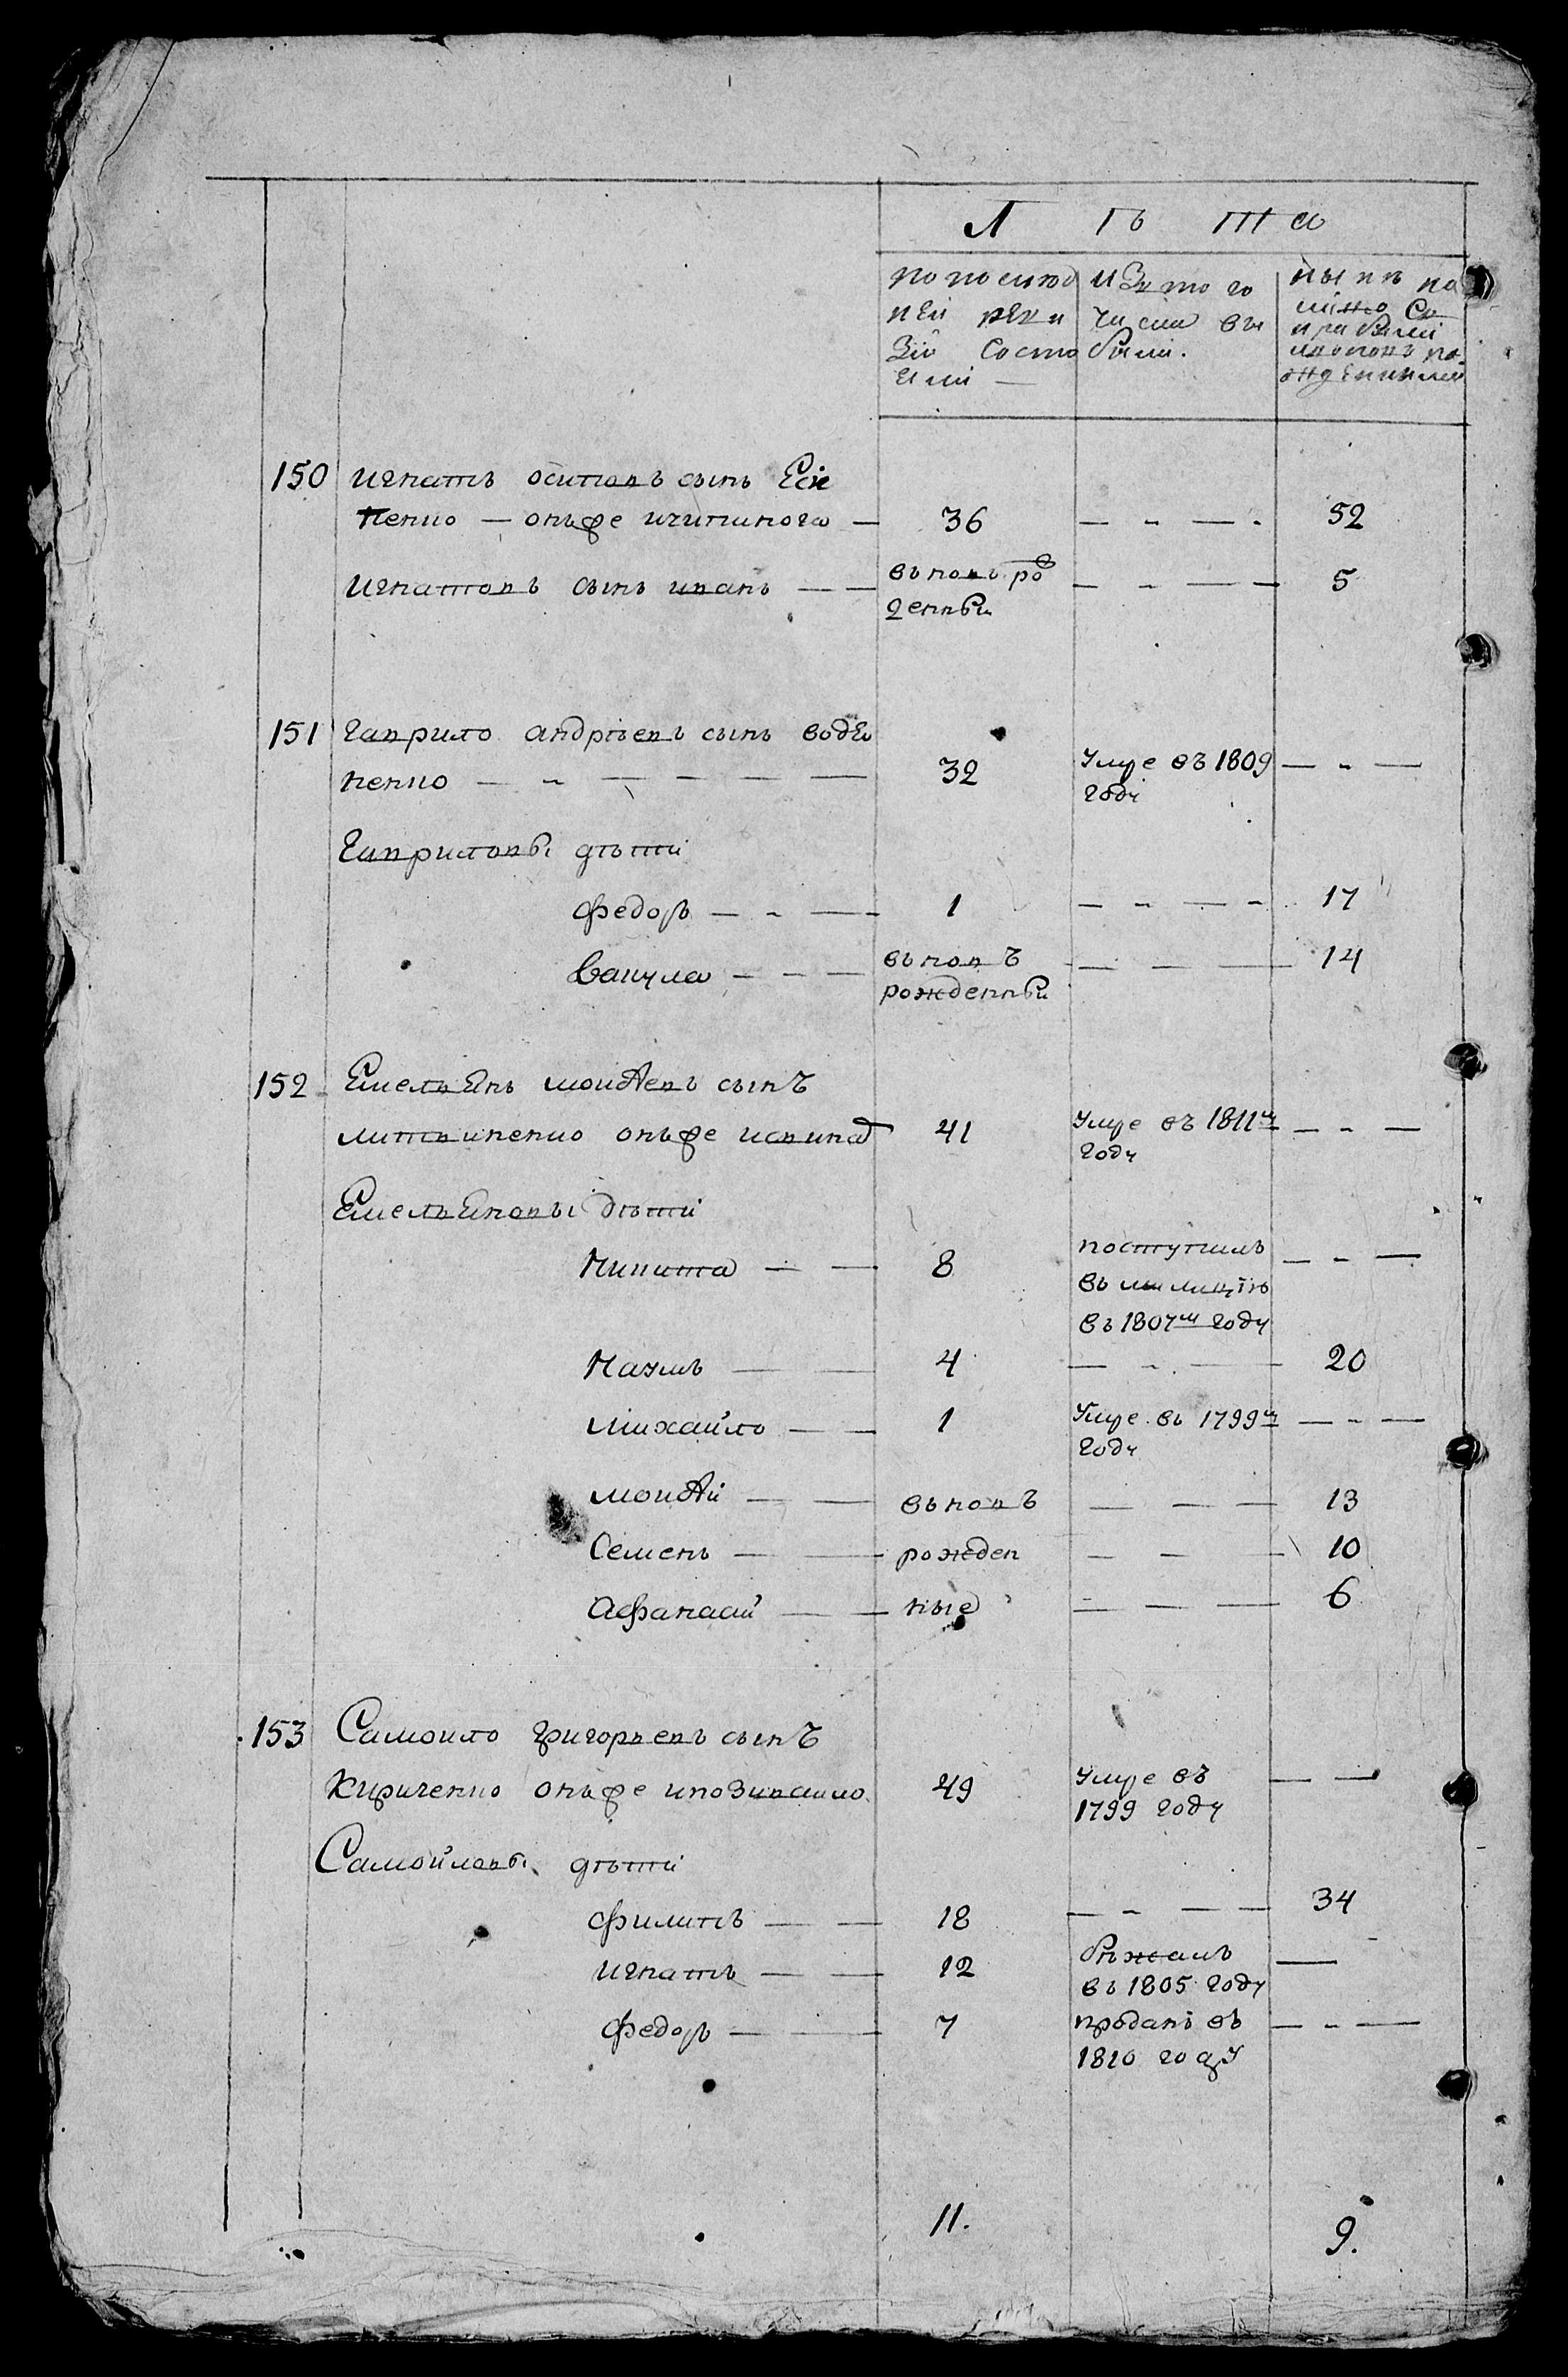 Лѣта
по последней ревизіи состояли —
изъ того числа выбыли.
нынѣ на лицо съ прибылми и вновь рожденными
150 игнатъ осиповъ сынъ Еси
ненко — онъ же — 36 — — — 52
игнатовъ сынъ иванъ — — вновь рожденный — — — 5
151 гаврило андрѣевъ сынъ водя
ненко — — — — 32 умре въ 1809 году — — —
гавриловы дѣти
федоръ — — — 1 — — — 17
вакула — — — вновъ рожденный — — — 14
152 Емельянъ моисѣевъ сынъ
литвиненко онъ же 41 умре въ 1811м году — — —
Емельяновы дѣти
Никита — — 8 поступилъ въ милицію въ 1807м году — — —
Наумъ — — 4 — — — 20
михайло — — 1 умре въ 1799м году — — —
моисѣй — — вновъ — — — 13
Семенъ — — рожден — — — 10
Афанасий — — ные — — — 6
153 Самоило григорьевъ сынъ
Кириченко онъ же 49 умре въ 1799 году — —
Самойловы дѣти
филипъ — — 18 — — — 34
игнатъ — — 12 бѣжалъ въ 1805 году —
федоръ — — 7 проданъ въ 1810 году — — —
11. 9.